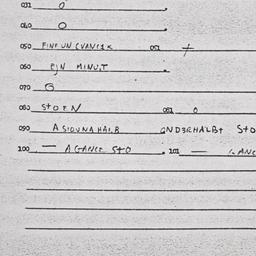 031 0
040 0
050 FINF UN CVANCIK 051 +
060 EJN MINUT
070 G
080 StOEN 081 0
090 A SIDUNAHALB 091 ANDERHALBt StO
100 — A GANCE StO 101 — GANC